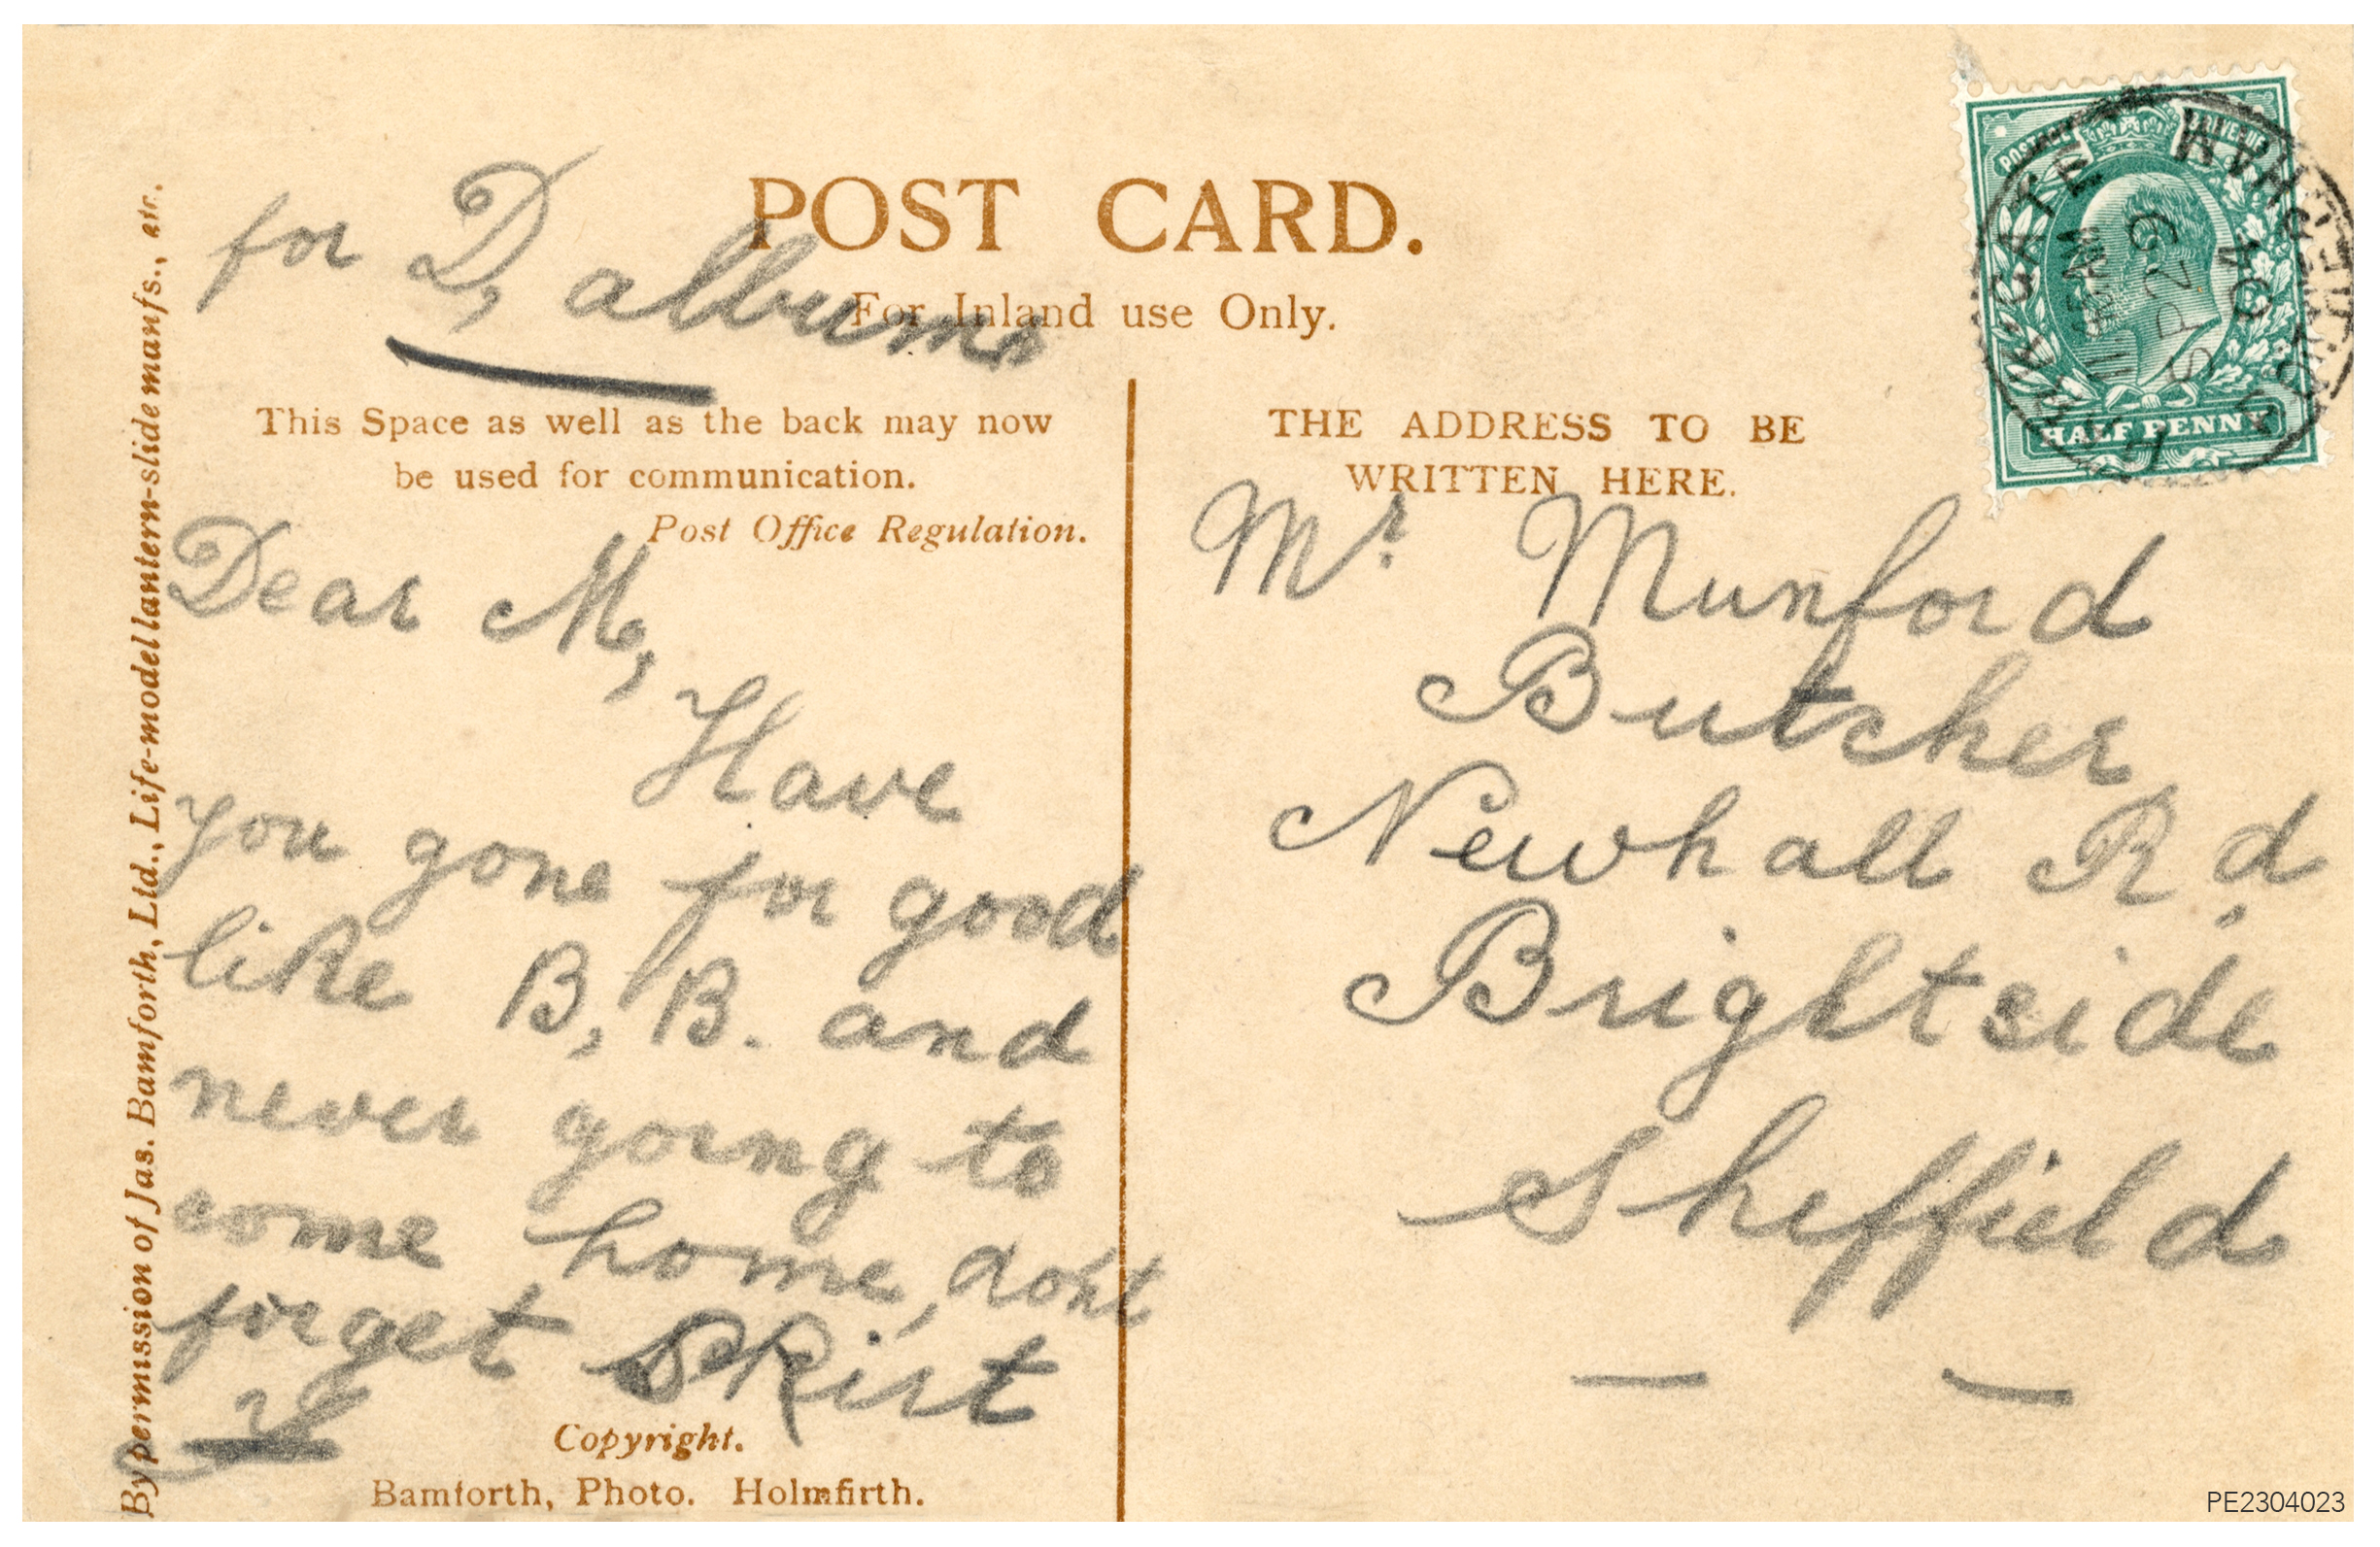 for D, albums
POST CARD.
For Inland use Only.
This Space as well as the back may now
be used for communication.
Post Office Regulation.
THE ADDRESS TO BE
WRITTEN HERE.
Dear M,
Have
you gone for good
like B, B. and
never going to
come home, don't
forget Skirt
Mr Munford
Butcher
Newhall Rd
Brightside
Sheffield
Copyright.
Bamforth, Photo. Holmfirth.
By permission of Jas. Bamforth, Ltd., Life-model lantern-slide manfs., etc.
POSTAGE REVENUE
HALF PENNY
SP 29
04
PE2304023